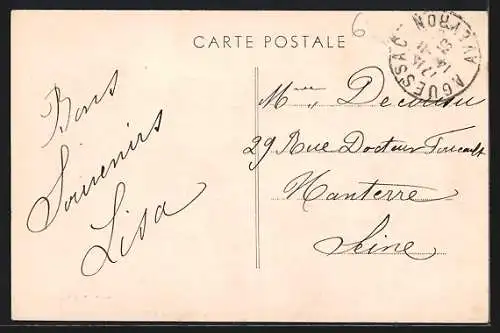 CARTE POSTALE
6
AGUESSAC
AVEYRON
Bons
Souvenirs
Lisa
Mme Decousu
29 Rue Docteur Foucault
Nanterre
Seine